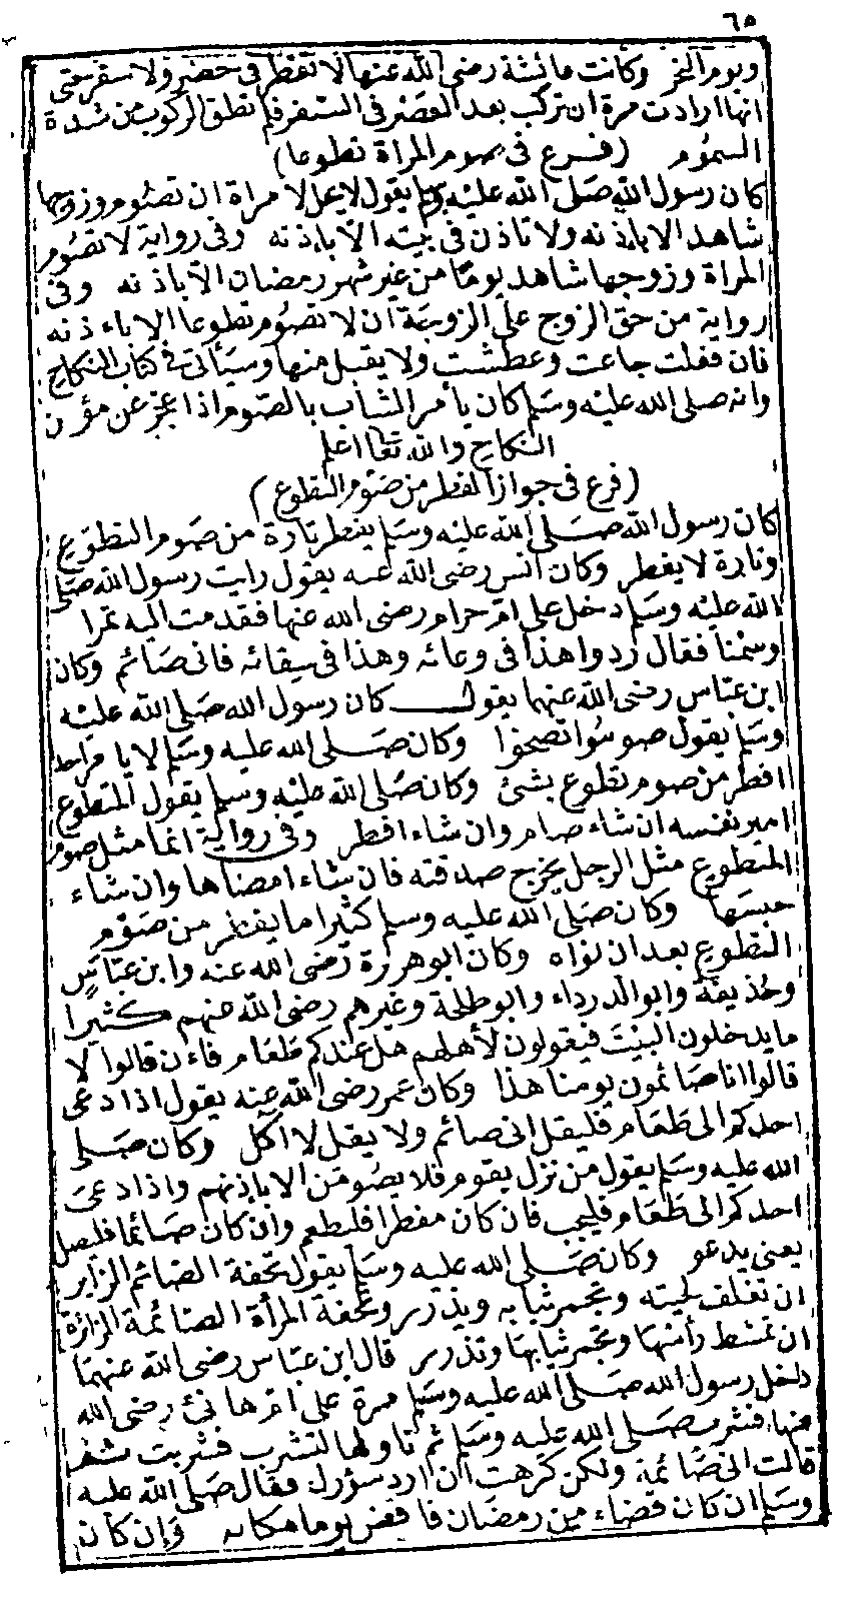 ٦٥
ويوم النحر وكانت عائشة رضي الله عنها لا تفطر في حضر ولا سفر حتى
انها ارادت مرة ان تركب بعد العصر في السفر فلم تطق الركوب من شدة
السموم (فرع في صوم المراة تطوعا)
كان رسول الله صلى الله عليه وسلم يقول لا يحل لامراة ان تصوم وزوجها
شاهد الا باذنه ولا تاذن في بيته الا باذنه وفي رواية لا تصوم
المراة وزوجها شاهد يوما من غير شهر رمضان الا باذنه وفي
رواية من حق الزوج على الزوجة ان لا تصوم تطوعا الا باءذنه
فان فعلت جاعت وعطشت ولا يقبل منها وسيأتي في كتاب النكاح
وانه صلى الله عليه وسلم كان يأمر الشاب بالصوم اذا عجز عن مؤن
النكاح والله تعا اعلم
(فرع في جواز الفطر من صوم التطوع)
كان رسول الله صلى الله عليه وسلم يفطر تارة من صوم التطوع
وتارة لا يفطر وكان انس رضي الله عنه يقول رايت رسول الله صلى
الله عليه وسلم دخل على ام حرام رضي الله عنها فقدمت اليه تمرا
وسمنا فقال ردوا هذا في وعائه وهذا في سقائه فاني صائم وكان
ابن عباس رضي الله عنهما يقول كان رسول الله صلى الله عليه
وسلم يقول صوموا تصحوا وكان صلى الله عليه وسلم لا يامر احدا
افطر من صوم تطوع بشئ وكان صلى الله عليه وسلم يقول المتطوع
امير نفسه ان شاء صام وان شاء افطر وفي رواية انما مثل صوم
المتطوع مثل الرجل يخرج صدقته فان شاء امضاها وان شاء
حبسها وكان صلى الله عليه وسلم كثيرا ما يفطر من صوم
التطوع بعد ان نواه وكان ابو هريرة رضي الله عنه وابن عباس
وحذيفة وابو الدرداء وابو طلحة وغيرهم رضي الله عنهم كثيرا
ما يدخلون البيت فيقولون لأهلهم هل عندكم طعام فاءن قالوا لا
قالوا انا صائمون يومنا هذا وكان عمر رضي الله عنه يقول اذا دعى
احدكم الى طعام فليقل انى صائم ولا يقل لا آكل وكان صلى
الله عليه وسلم يقول من نزل بقوم فلا يصومن الا باذنهم واذا دعى
احدكم الى طعام فليجب فان كان مفطرا فليطعم وان كان صائما فليصل
يعنى يدعو وكان صلى الله عليه وسلم يقول تحفة الصائم الزاير
ان تغلف لحيته وتجمر ثيابه ويذرر وتحفة المرأة الصائمة الزائرة
ان تمشط رأسها وتجمر ثيابها وتذرر قال ابن عباس رضي الله عنهما
دخل رسول الله صلى الله عليه وسلم مرة على ام هانئ رضي الله
عنها فشرب صلى الله عليه وسلم ثم ناولها لتشرب فشربت ثم
قالت انى صائمة ولكن كرهت ان ارد سؤرك فقال صلى الله عليه
وسلم ان كان قضاء من رمضان فاقض يوما مكانه وان كان